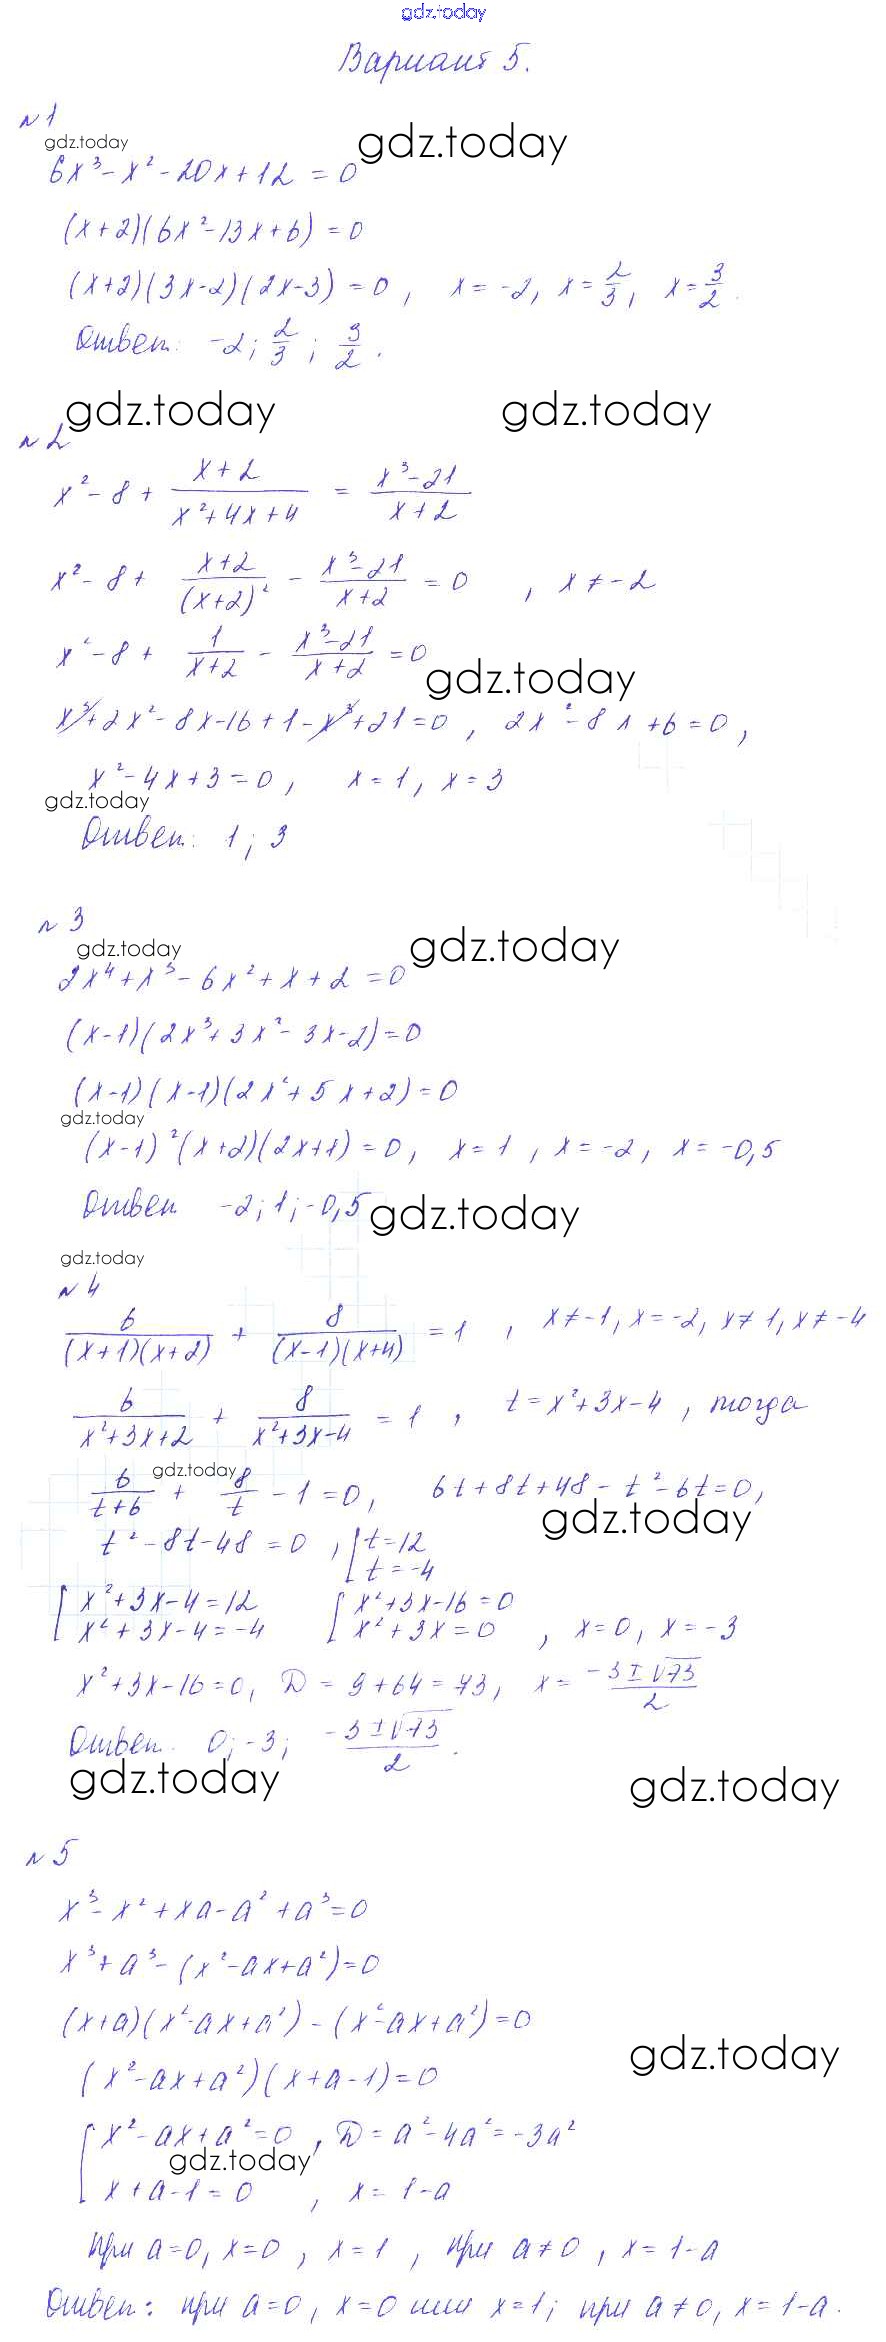 gdz.today
Вариант 5.
№1
gdz.today gdz.today
6x³ - x² - 20x + 12 = 0
(x+2)(6x² - 13x + 6) = 0
(x+2)(3x-2)(2x-3) = 0, x = -2, x = 2/3, x = 3/2.
Ответ: -2; 2/3; 3/2.
gdz.today gdz.today
№2
x² - 8 + (x+2)/(x²+4x+4) = (x³-21)/(x+2)
x² - 8 + (x+2)/(x+2)² - (x³-21)/(x+2) = 0, x ≠ -2
x² - 8 + 1/(x+2) - (x³-21)/(x+2) = 0
gdz.today
x³ + 2x² - 8x - 16 + 1 - x³ + 21 = 0, 2x² - 8x + 6 = 0,
x² - 4x + 3 = 0, x = 1, x = 3
gdz.today
Ответ: 1; 3
№3
gdz.today gdz.today
2x⁴ + x³ - 6x² + x + 2 = 0
(x-1)(2x³ + 3x² - 3x - 2) = 0
(x-1)(x-1)(2x² + 5x + 2) = 0
gdz.today
(x-1)²(x+2)(2x+1) = 0, x = 1, x = -2, x = -0,5
Ответ -2; 1; -0,5
gdz.today
gdz.today
№4
6/((x+1)(x+2)) + 8/((x-1)(x+4)) = 1, x ≠ -1, x = -2, x ≠ 1, x ≠ -4
6/(x²+3x+2) + 8/(x²+3x-4) = 1, t = x² + 3x - 4, тогда
gdz.today
6/(t+6) + 8/t - 1 = 0, 6t + 8t + 48 - t² - 6t = 0,
gdz.today
t² - 8t - 48 = 0, [t = 12
t = -4
[x² + 3x - 4 = 12 [x² + 3x - 16 = 0
x² + 3x - 4 = -4 x² + 3x = 0, x = 0, x = -3
x² + 3x - 16 = 0, D = 9 + 64 = 73, x = (-3±√73)/2
Ответ. 0; -3; (-3±√73)/2.
gdz.today gdz.today
№5
x³ - x² + xa - a² + a³ = 0
x³ + a³ - (x² - ax + a²) = 0
(x+a)(x² - ax + a²) - (x² - ax + a²) = 0
gdz.today
(x² - ax + a²)(x + a - 1) = 0
[x² - ax + a² = 0, D = a² - 4a² = -3a²
gdz.today
x + a - 1 = 0, x = 1 - a
при a = 0, x = 0, x = 1, при a ≠ 0, x = 1 - a
Ответ: при a = 0, x = 0 или x = 1; при a ≠ 0, x = 1 - a.